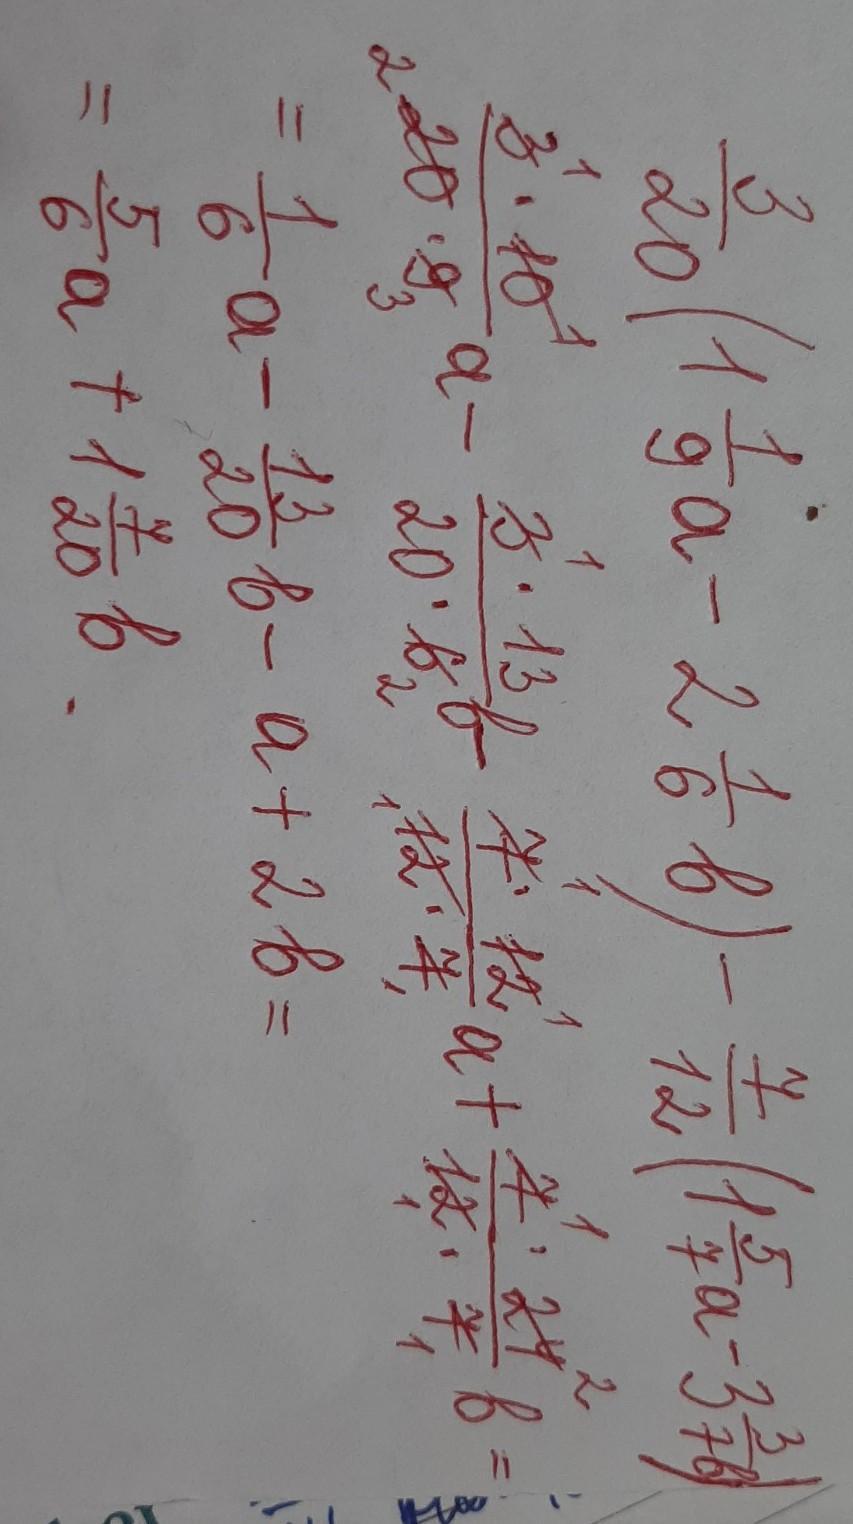 3/20 (1 1/9 a - 2 1/6 b) - 7/12 (1 5/7 a - 3 3/7 b)
3¹ · 10¹ / ₂20 · 9₃ a - 3¹ · 13 / 20 · 6₂ b - 7¹ · 12¹ / ₁12 · 7₁ a + 7¹ · 24² / 12₁ · 7₁ b =
= 1/6 a - 13/20 b - a + 2b =
= 5/6 a + 1 7/20 b.